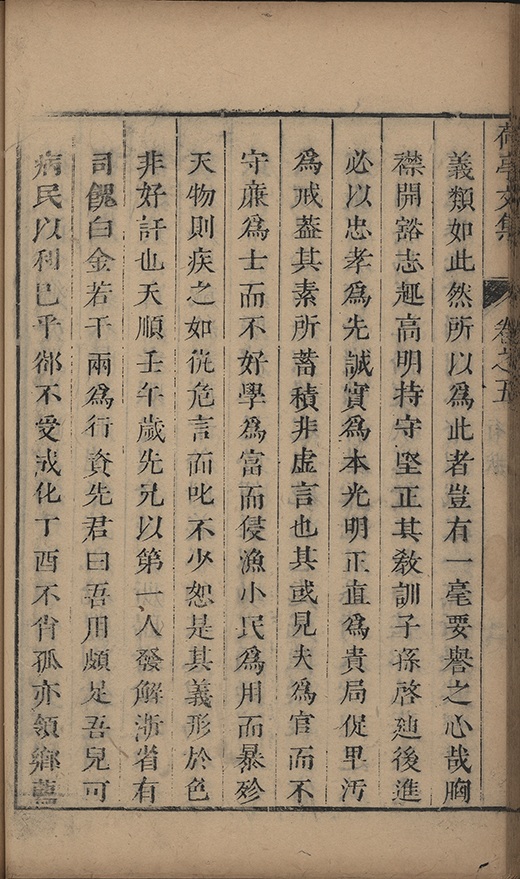 荷亭文集 卷之五
義類如此然所以爲此者豈有一毫要譽之心哉胸
襟開豁志趣高明持守堅正其敎訓子孫啓迪後進
必以忠孝爲先誠實爲本光明正直爲貴局促卑汚
爲戒葢其素所蓄積非虛言也其或見夫爲官而不
守廉爲士而不好學爲富而侵漁小民爲用而暴殄
天物則疾之如讐危言面叱不少恕是其義形於色
非好訐也天順壬午歲先兄以第一人發解淅省有
司餽白金若干兩爲行資先君曰吾用頗足吾兒可
病民以利已乎郤不受成化丁酉不肖孤亦領鄉薦